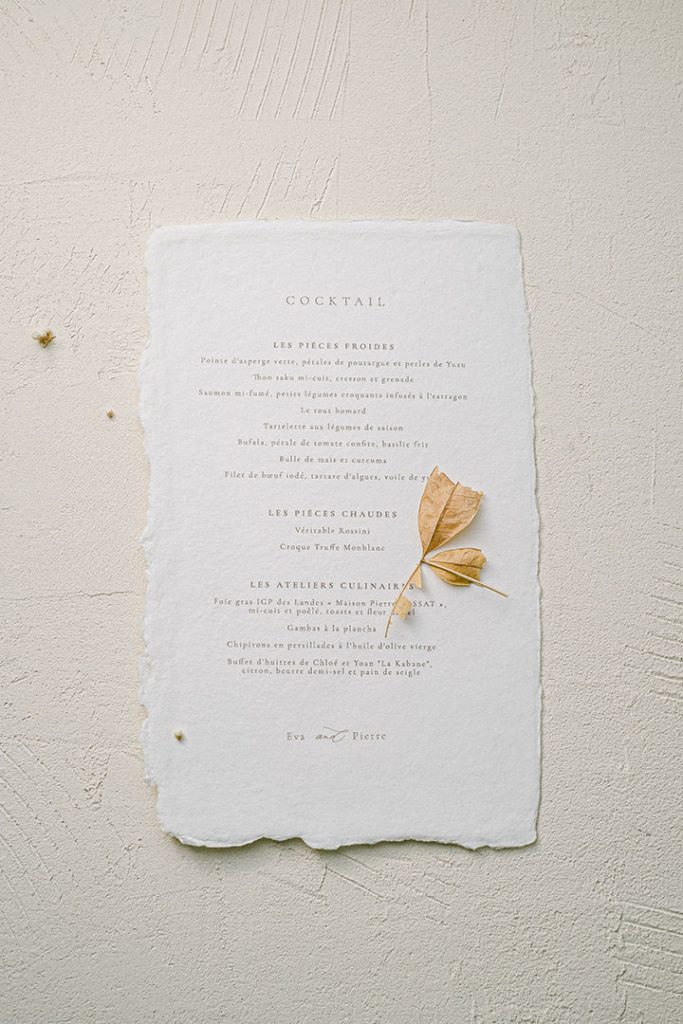 COCKTAIL
LES PIÈCES FROIDES
Pointe d'asperge verte, pétales de poutargue et perles de Yuzu
Thon saku mi-cuit, cresson et grenade
Saumon mi-fumé, petits légumes croquants infusés à l'estragon
Le tout homard
Tartelette aux légumes de saison
Bufala, pétale de tomate confite, basilic frit
Bulle de maïs et curcuma
Filet de bœuf iodé, tartare d'algues, voile de
LES PIÈCES CHAUDES
Véritable Rossini
Croque Truffe Monblanc
LES ATELIERS CULINAIRES
Foie gras IGP des Landes « Maison Pierre »,
mi-cuit et poêlé, toasts et fleur
Gambas à la plancha
Chipirons en persillades à l'huile d'olive vierge
Buffet d'huîtres de Chloé et Yoan "La Kabane",
citron, beurre demi-sel et pain de seigle
Eva and Pierre